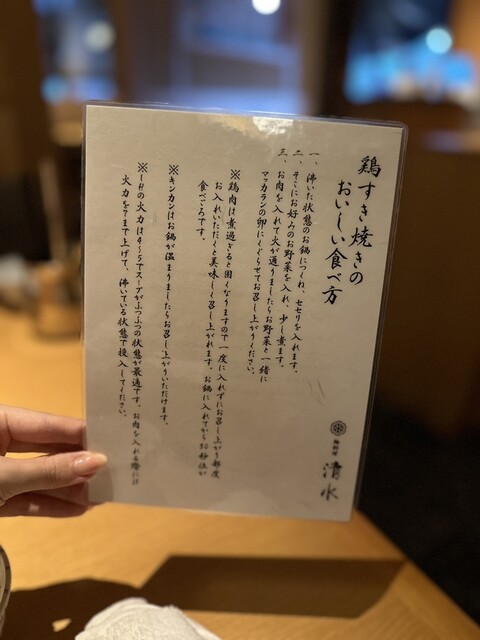 鶏すき焼きの
おいしい食べ方
一、沸いた状態のお鍋につくね、セセリを入れます。
二、そこにお好みのお野菜を入れ、少し煮ます。
三、お肉を入れて火が通りましたらお野菜と一緒に
マッカランの卵にくぐらせてお召し上がりください。
※鶏肉は煮過ぎると固くなりますので一度に入れずにお召し上がり都度
お入れいただくと美味しく召し上がれます。お鍋に入れてから30秒位が
食べごろです。
※キンカンはお鍋が温まりましたらお召し上がりいただけます。
※IHの火力は4~5でスープがふつふつの状態が最適です。お肉を入れる際には
火力を7まで上げて、沸いている状態で投入してください。
清水